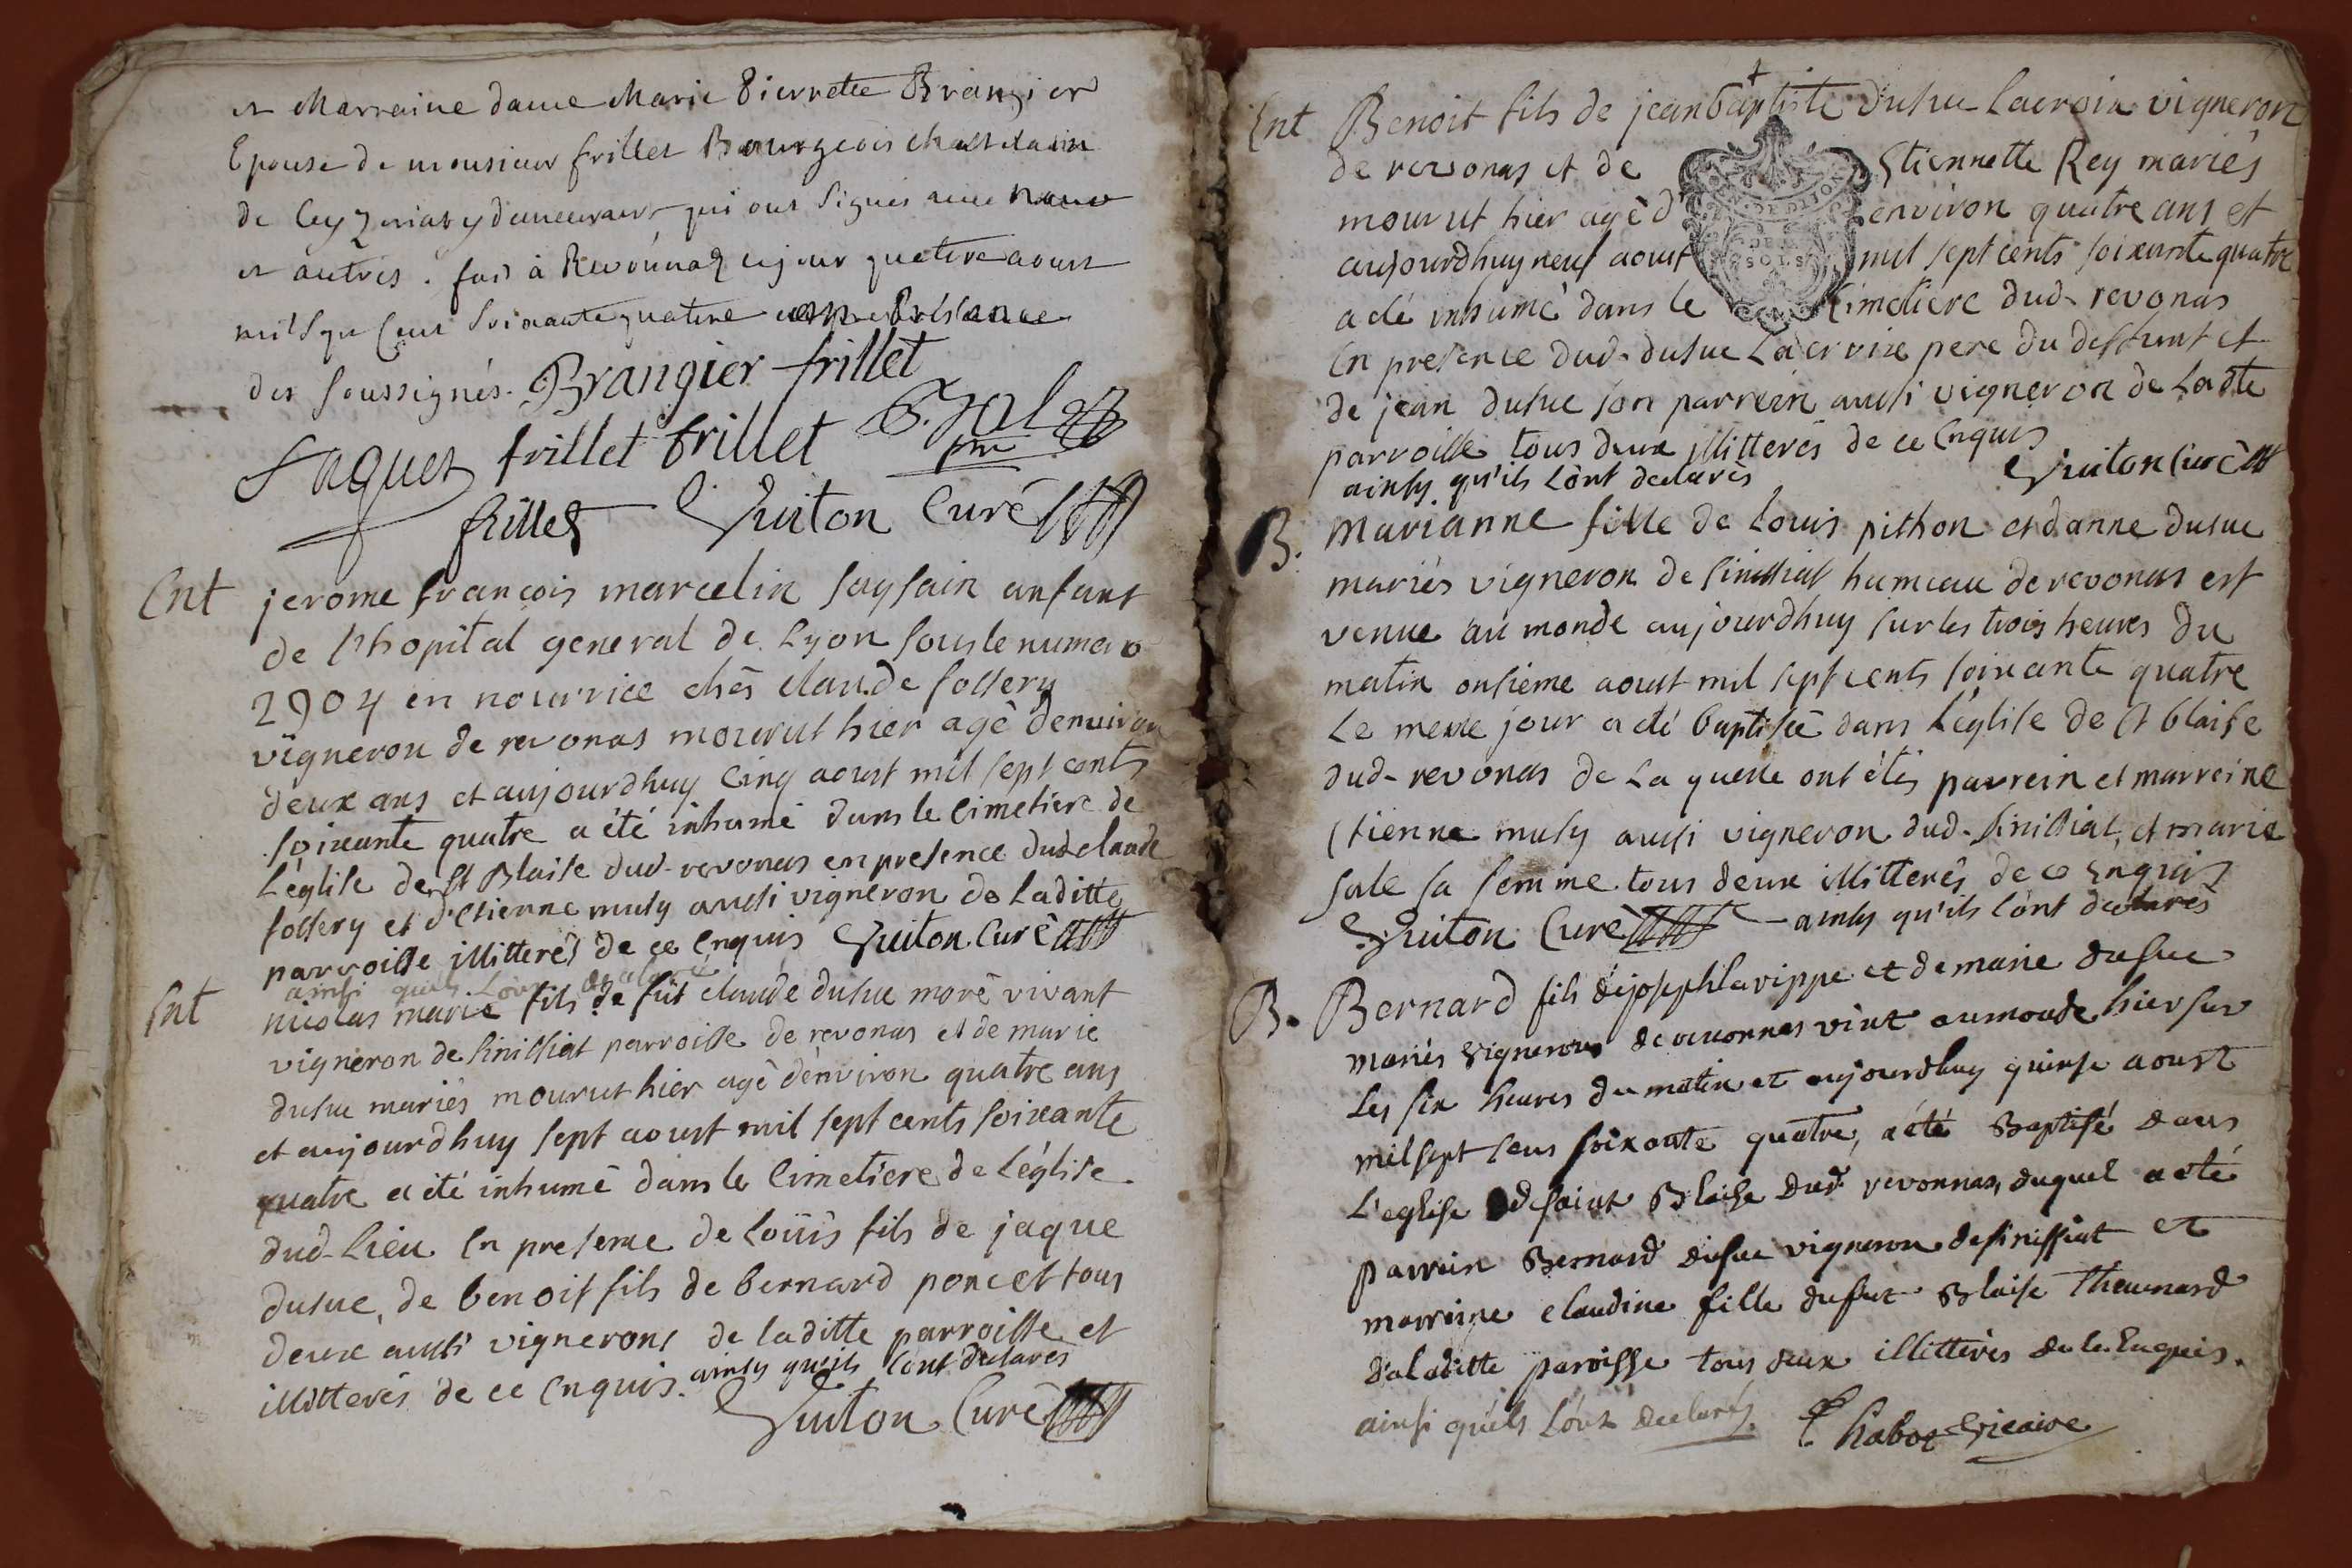 et Marraine dame Marie Pierrette Brangier
Epouse de monsieur frillet Bourgeois Chastelain
de Ceyzeriat y demeurant qui ont signés avec nous
et autres. fait à Revonnas ce jour quatre aoust
mil sept cent soixante quatre en présance
des soussignés. Brangier frillet
Jaquet frillet frillet
frillet Guiton Curé
Ent jerome francois marcelin saysain anfant
de l'hopital general de Lyon sous le numero
2904 en nourrice chés claude sossery
vigneron de revonas mourut hier agé denviron
deux ans et aujourdhuy cinq aoust mil sept cents
soixante quatre a été inhumé dans le cimetiere de
L'église de St Blaise dud. revonas en presence dud claude
sossery et d'Etienne musy aussi vigneron de laditte
parroisse illitterés de ce Enquis Guiton Curé
ainsi quils Lont déclaré
Ent nicolas marie fils de fût claude dusuc moré vivant
vigneron de sinissiat parroisse de revonas et de marie
dusuc mariés mourut hier agé d'environ quatre ans
et aujourdhuy sept aoust mil sept cents soixante
quatre a été inhumé dans le cimetiere de L'église
dud. Lieu En presence de Loüis fils de jaque
dusuc, de benoit fils de bernard poncet tous
deux aussi vignerons de laditte parroisse et
illitterés de ce Enquis. ainsy qu'ils L'ont déclarés
Guiton Curé
Ent Benoit fils de jean baptiste dusuc Lacroix vigneron
de revonas et de Etiennette Rey mariés
mourut hier agé d'environ quatre ans et
aujourdhuy neuf aoust mil sept cents soixante quatre
a été inhumé dans le Cimetiere dud. revonas
En presence dud. dusuc Lacroix pere du deffunt et
de jean dusuc son parrein aussi vigneron de Ladte
parroisse tous deux illitterés de ce Enquis
ainsy qu'ils L'ont declarés Guiton Curé
B. Marianne fille de Louis pithon et danne dusuc
mariés vigneron de sinissiat hameau de revonas est
venue au monde aujourdhuy sur les trois heures du
matin onsieme aoust mil sept cents soixante quatre
Le meme jour a été baptisée dans L'église de St blaise
dud. revonas de La quelle ont étés parrein et marreine
Etienne musy aussi vigneron dud. sinissiat, et marie
sale sa femme. tous deux illitterés de ce Enquis
Guiton Curé ainsy qu'ils L'ont declarés
B. Bernard fils de joseph lavippe et de marie dusuc
mariés vignerons de revonnas vint au monde hier sur
Les six heures du matin et aujourdhuy quinse aoust
mil sept sens soixante quatre, a été Baptisé dans
L'eglise de saint Blaise dud. revonnas, duquel a été
parrein Bernard dusuc vigneron de sinissiat et
marreine claudine fille du fut Blaise Thevenard
de laditte paroisse tous deux illitterés de ce Enquis.
ainsi quils L'ont declarés. Chaboz Vicaire